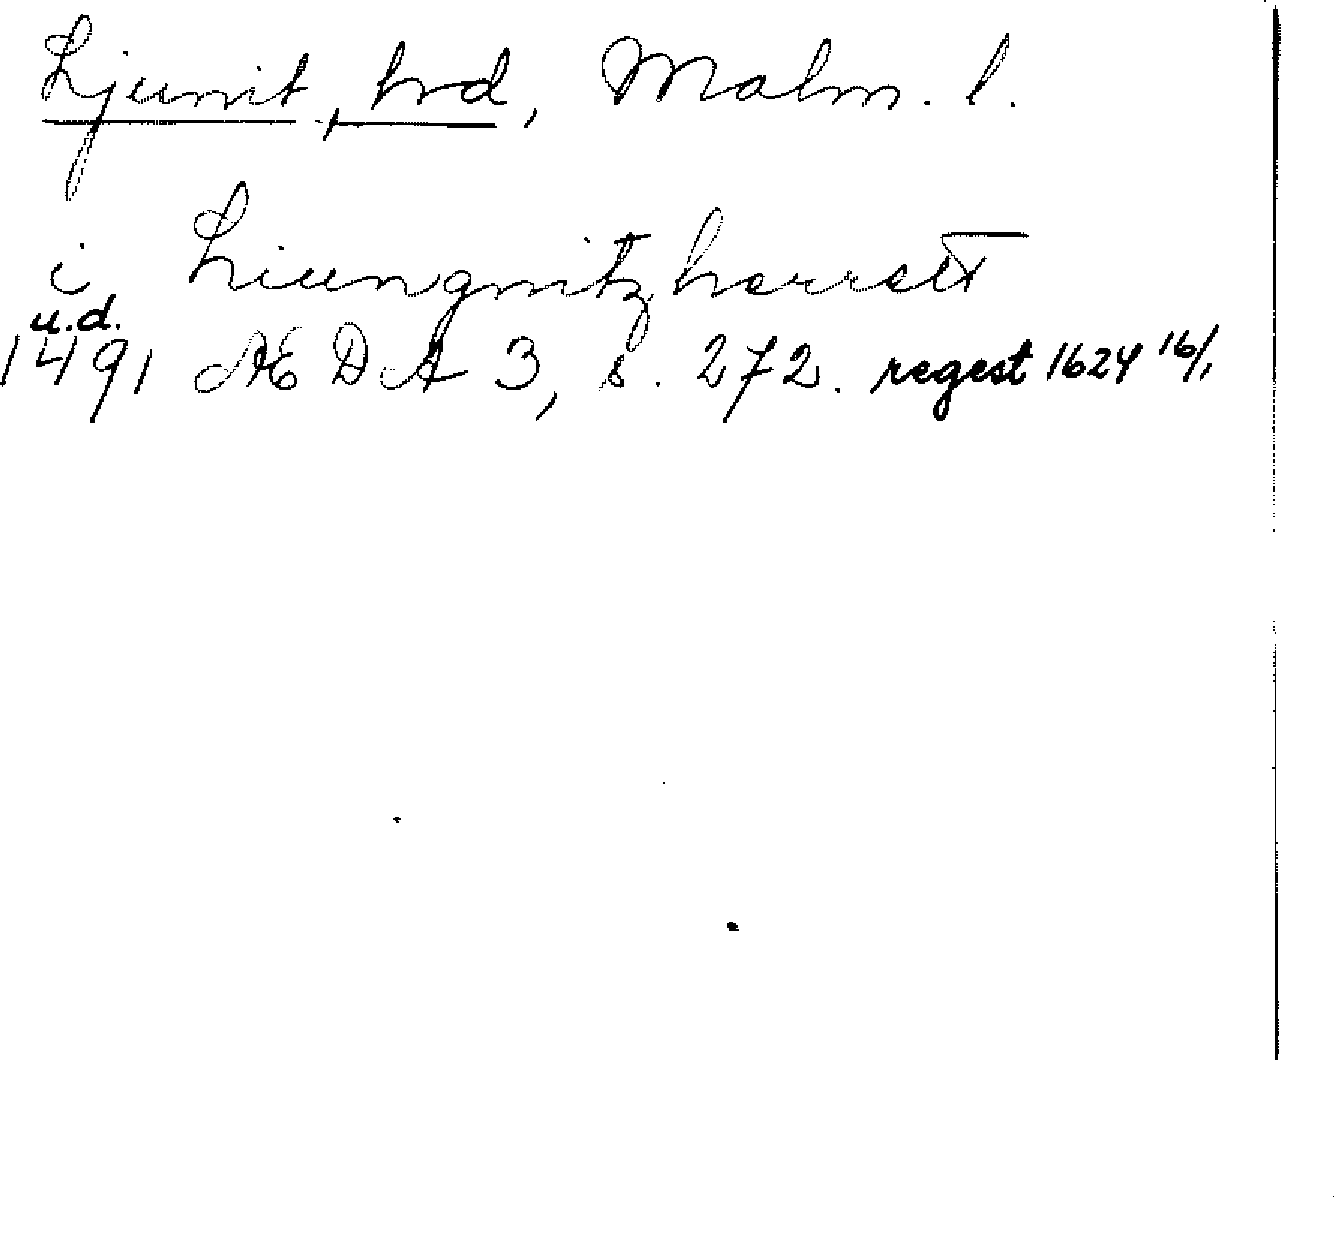 Ljunit, hrd, Malm. l.
i Liungnitz herrett
u.d.
1491 ÆDA 3, s. 272. regest 1624 16/1